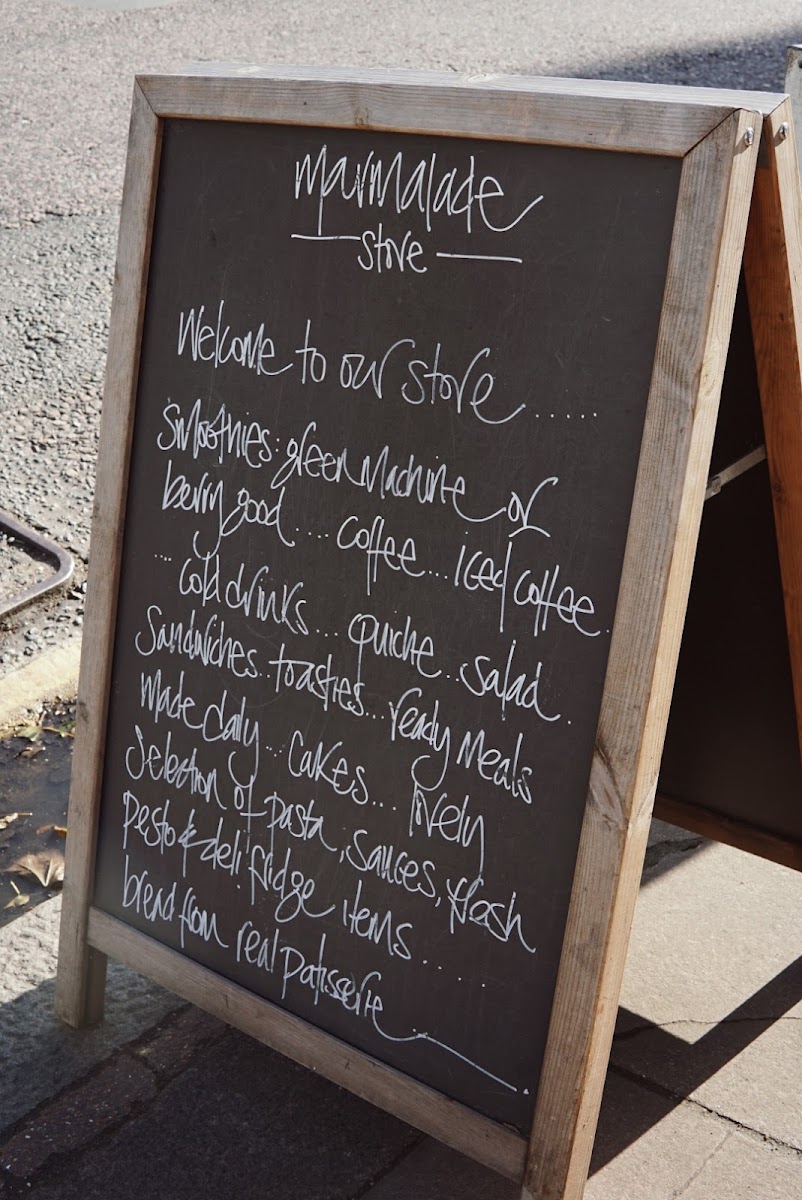 Marmalade
store
Welcome to our store......
Smoothies: green Machine or
berry good.... coffee... Iced coffee.
.... cold drinks... quiche...salad.
Sandwiches...toasties...ready Meals
Made daily... cakes... lovely
Selection of pasta, sauces, fresh
pesto & deli fridge items.....
bread from real patisserie